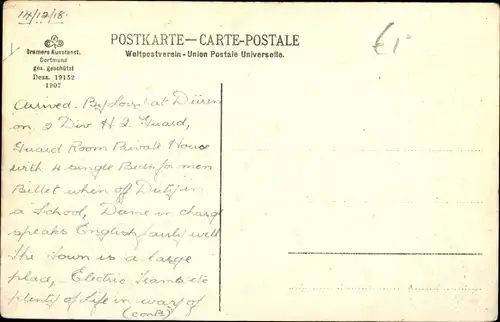 14/12/18.
POSTKARTE — CARTE-POSTALE
Weltpostverein - Union Postale Universelle.
Cramers Kunstanst.
Dortmund
ges. geschützt
Dess. 19152
1907
£1-
Arrived. at Düren
on 2 Div H.Q. Guard,
Guard Room Private House
with 4 single Beds for men
Billet when off Duty in
a School, Dame in charge
speaks English fairly well
The Town is a large
place, Electric Trams etc
plenty of Life in way of
(contd)